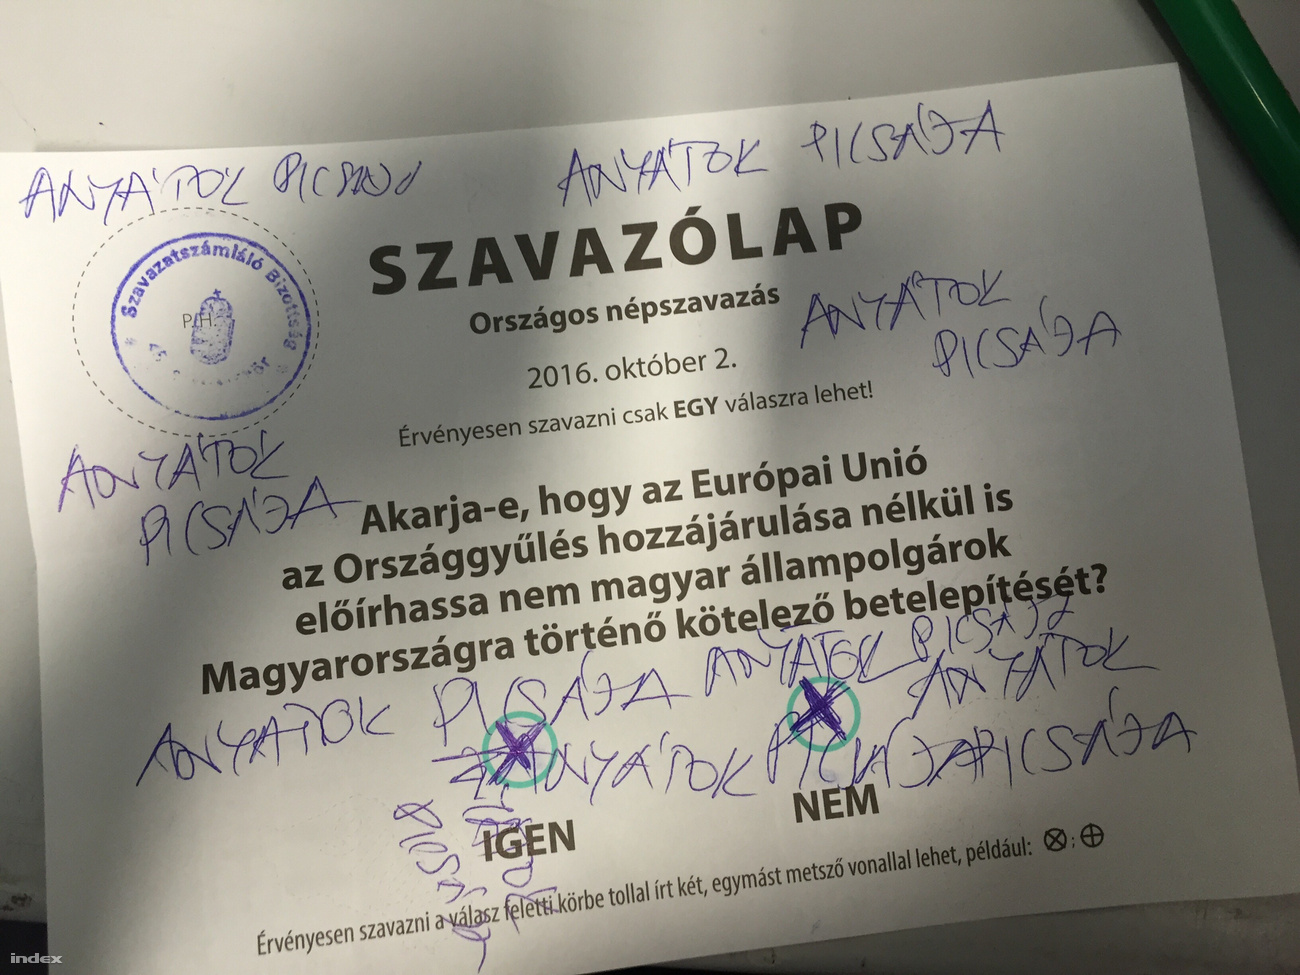 ANYÁTOK
ANYÁTOK PICSÁJA
SZAVAZÓLAP
Szavazatszámláló Bizottság
P.H.
Országos népszavazás
ANYÁTOK
PICSÁJA
2016. október 2.
Érvényesen szavazni csak EGY válaszra lehet!
ANYÁTOK
PICSÁJA
Akarja-e, hogy az Európai Unió
az Országgyűlés hozzájárulása nélkül is
előírhassa nem magyar állampolgárok
Magyarországra történő kötelező betelepítését?
ANYÁTOK PICSÁJA
ANYÁTOK PICSÁJA
ANYÁTOK
ANYÁTOK PICSÁJA PICSÁJA
IGEN
NEM
Érvényesen szavazni a válasz feletti körbe tollal írt két, egymást metsző vonallal lehet, például: ⊗ ; ⊕
index